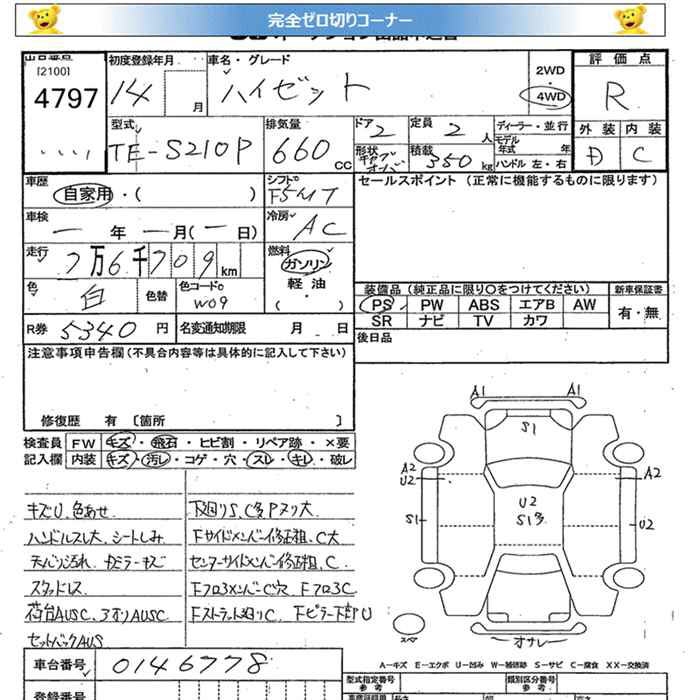 完全ゼロ切りコーナー
出品番号 [2100] 4797
初度登録年月 14 月
車名・グレード ハイゼット
2WD
4WD
評価点 R
外装 内装
D C
型式 TE-S210P
排気量 660 CC
ドア 2
定員 2 人
形状 キャブオーバ
積載 350 kg
ディーラー・並行
モデル年式 年
ハンドル 左・右
車歴 自家用・( )
シフト F5MT
セールスポイント (正常に機能するものに限ります)
車検 ー 年 ー 月(ー 日)
冷房 AC
走行 7万6千709 km
燃料 ガソリン
軽油
( )
色 白 色替
色コード W09
装備品 (純正品に限り○をつけてください)
新車保証書
PS PW ABS エアB AW
有・無
SR ナビ TV カワ
R券 5340 円
名変通知期限 月 日
後日品
注意事項申告欄 (不具合内容等は具体的に記入して下さい)
修復歴 有 〔箇所 〕
検査員 FW キズ・飛石・ヒビ割・リペア跡・×要
記入欄 内装 キズ・汚レ・コゲ・穴・スレ・キレ・破レ
キズU、色あせ
ハンドルスレ大、シートしみ
天バリ汚れ、
スタッドレス
荷台AUSC、アオリAUSC
セットバックAUS
下廻りS、C多Pヌリ大
Fサイドメンバー修正粗、C大
センターサイドメンバー修正粗、C
Fフロアメンバー C穴 Fフロア C
Fストラット廻り C Fピラー下部U
A1 A1
S1
A2 U2
A2
U2 S1多
S1
U2
スペア
オサレ
A−キズ E−エクボ U−凹み W−補修跡 S−サビ C−腐食 XX−交換済
車台番号 0146778
型式指定番号 参考
類別区分番号 参考
登録番号